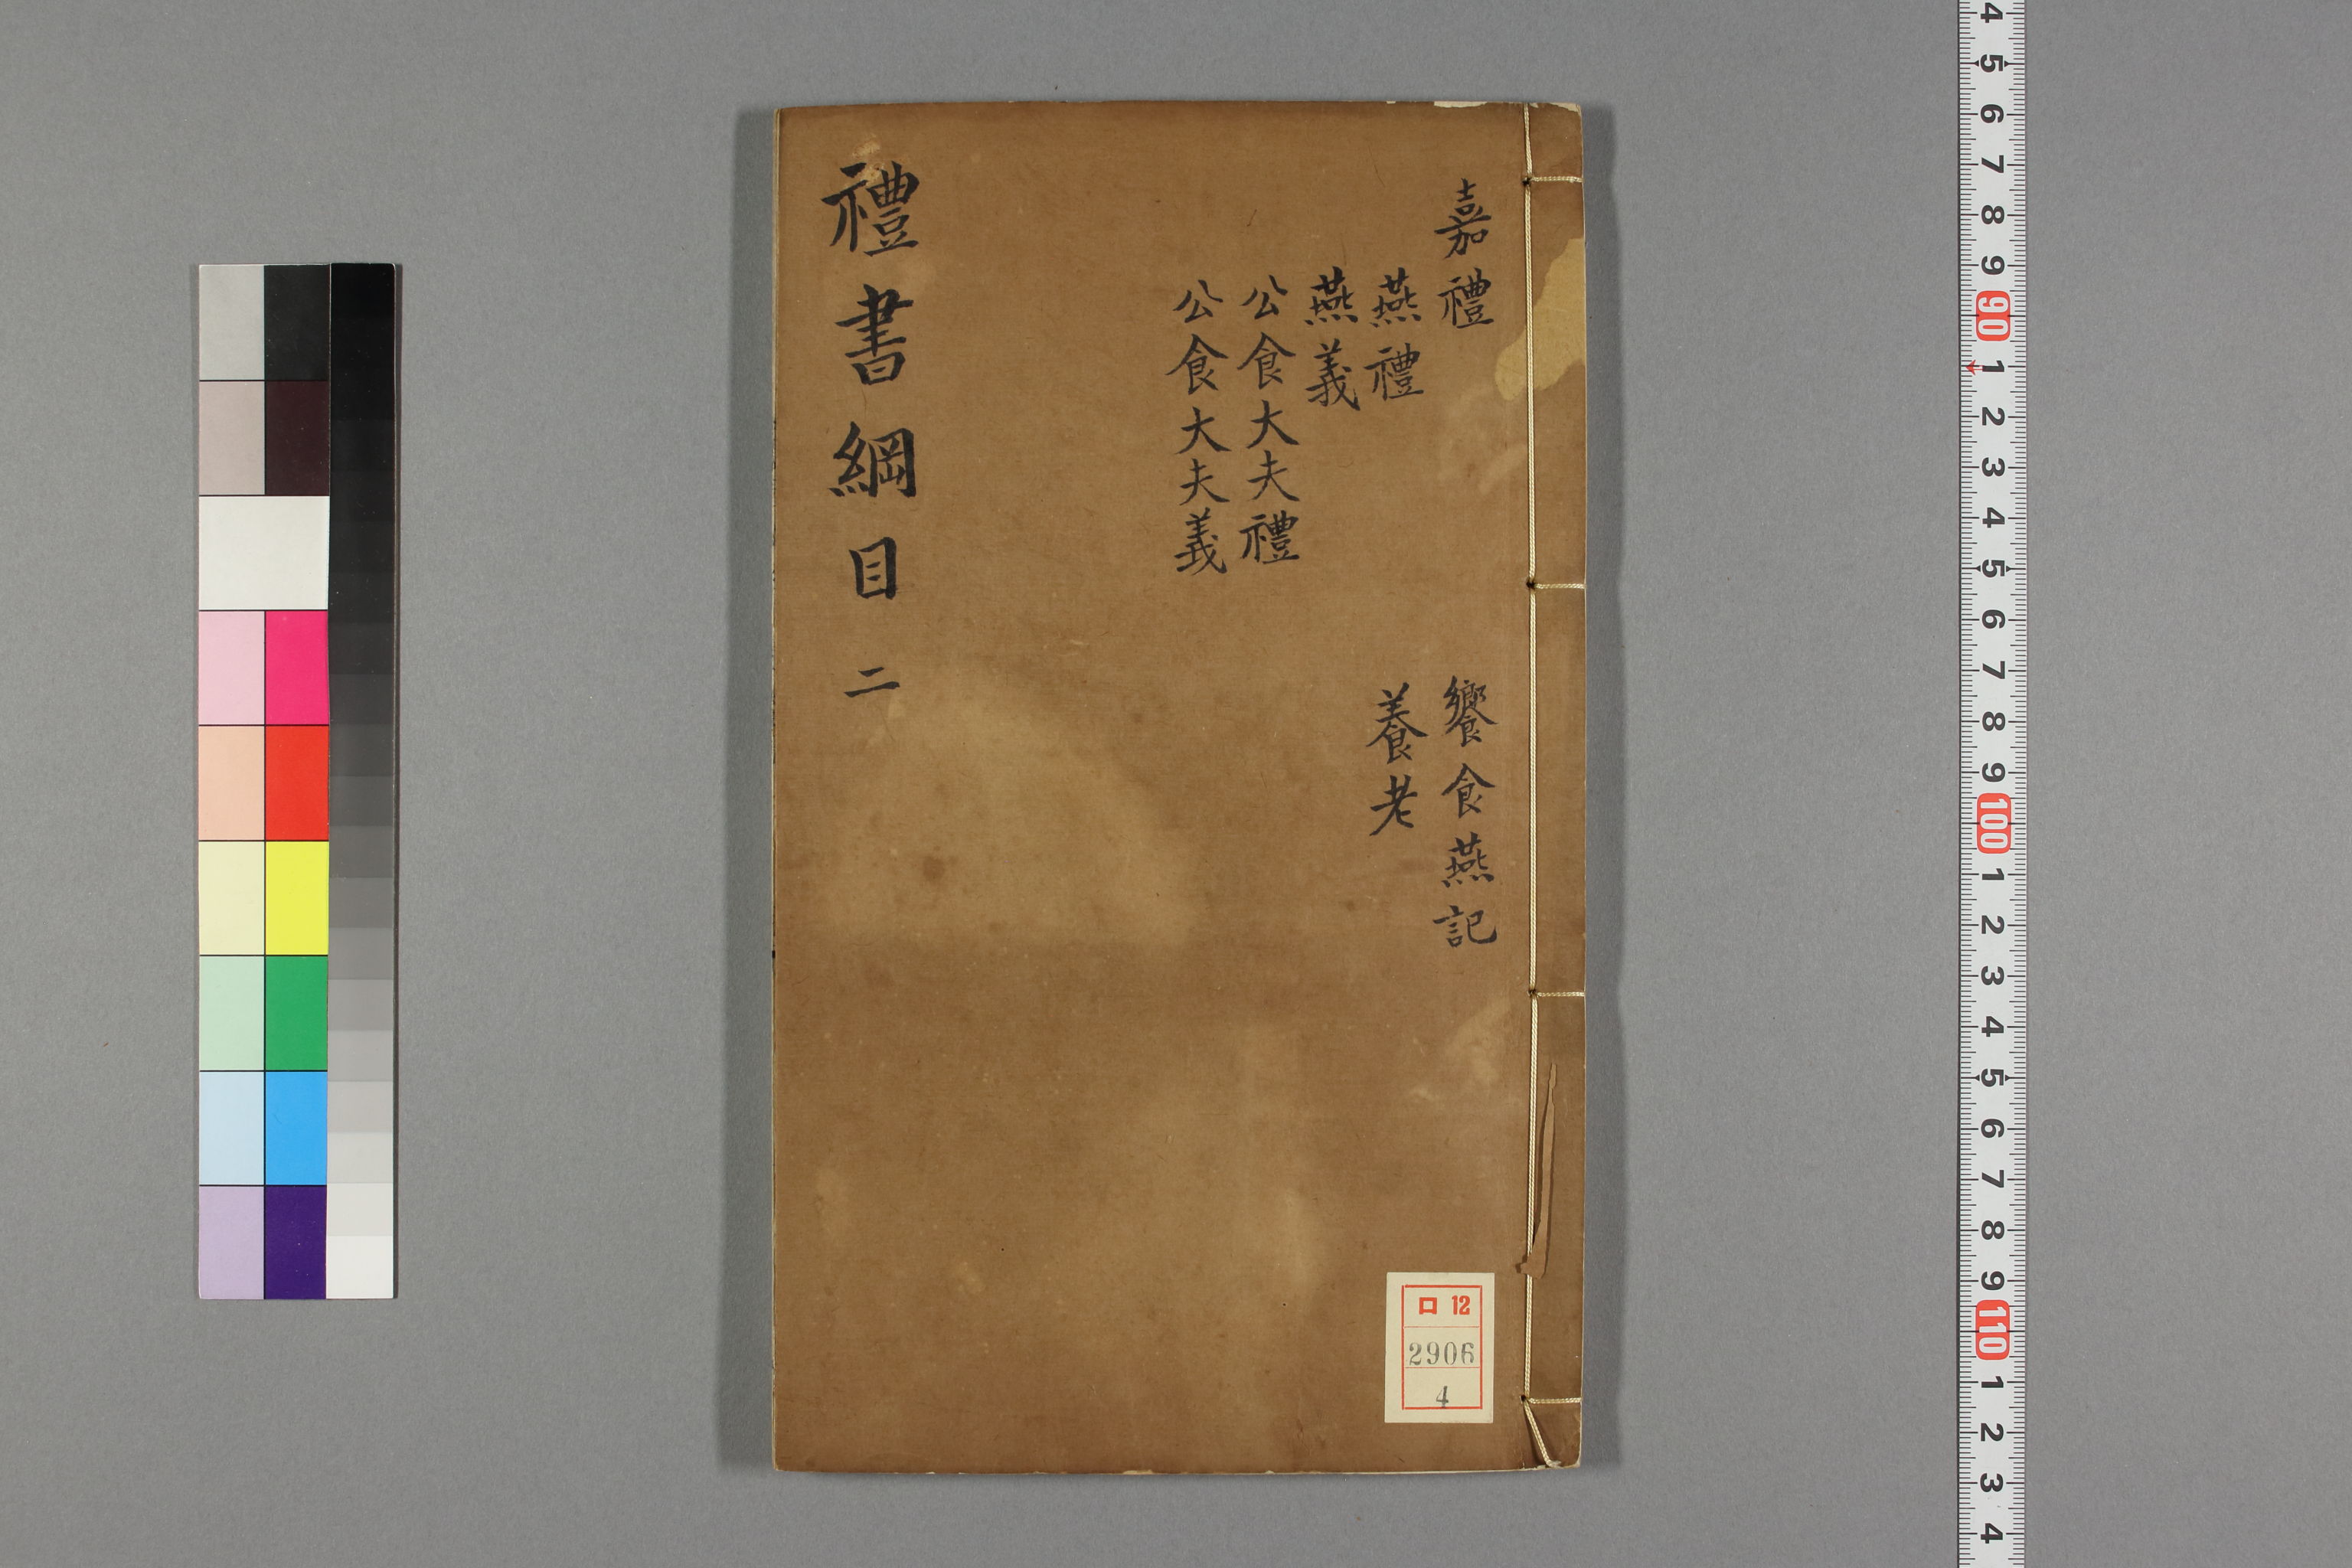 嘉禮
燕禮
燕義
公食大夫禮
公食大夫義
饗食燕記
養老
禮書綱目 二
ロ 12
2906
4
4 5 6 7 8 9 90 1 2 3 4 5 6 7 8 9 100 1 2 3 4 5 6 7 8 9 110 1 2 3 4